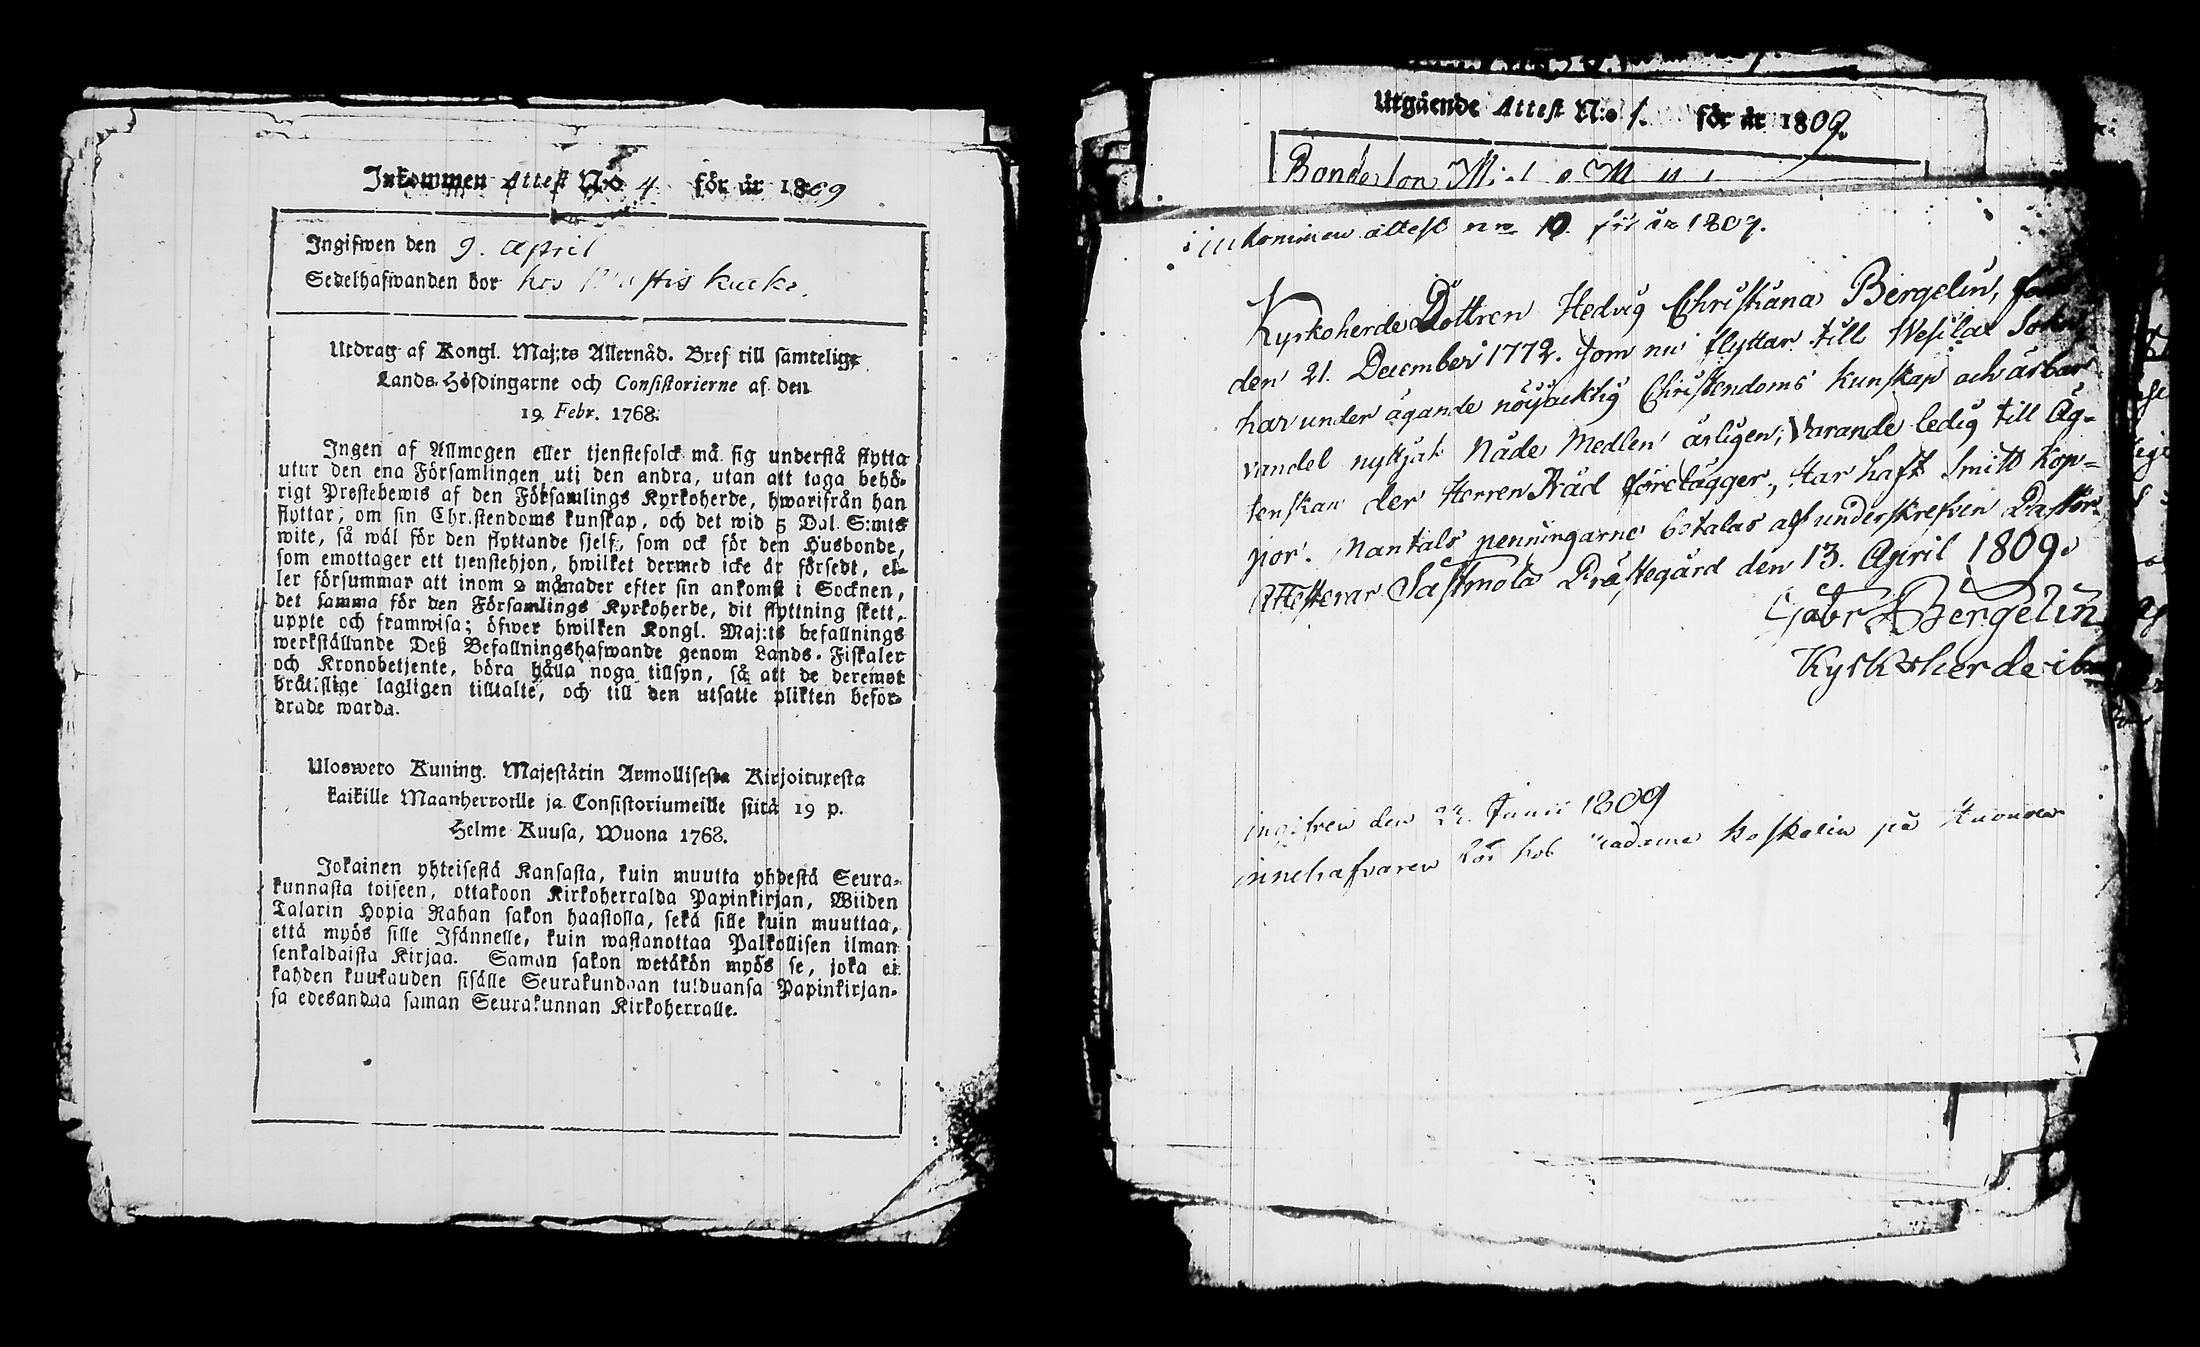 Inkommen Attest N:o 4. för år 1809
Ingifwen den 9. April
Sedelhafwanden bor hos
Utdrag af Kongl. Maj:ts Allernåd. Bref till samtelige
Lands-Höfdingarne och Consistorierne af den
19 Febr. 1768.
Ingen af Allmogen eller tjenstefolck må sig understå flytta
utur den ena Församlingen uti den andra, utan att taga behö-
rigt Prestebewis af den Församlings Kyrkoherde, hwarifrån han
flyttar, om sin Christendoms kunskap, och det wid 5 Dal. S:mts
wite, så wäl för den flyttande sjelf, som ock för den Husbonde,
som emottager ett tjenstehjon, hwilket dermed icke är försedt, el-
ler försummar att inom 2 månader efter sin ankomst i Socknen,
det samma för den Församlings Kyrkoherde, dit flyttning skett,
uppte och framwisa; öfwer hwilken Kongl. Maj:ts befallnings
werkställande Deß Befallningshafwande genom Lands-Fiskaler
och Kronobetjente, böra hålla noga tillsyn, så att de deremot
brätslige lagligen tilltalte, och till den utsatte plikten befor-
drade warda.
Ulosweto Kuning. Majestätin Armollisesta Kirjoituxesta
kaikille Maanherroille ja Consistoriumeille siitä 19 p.
Helme Kuusa, Wuona 1768.
Jokainen yhteisestä Kansasta, kuin muutta yhdestä Seura-
kunnasta toiseen, ottakoon Kirkoherralda Papinkirjan, Wiiden
Talarin Hopia Rahan sakon haastolla, sekä sille kuin muuttaa,
että myös sille Isännelle, kuin wastanottaa Palkollisen ilman
senkaldaista Kirjaa. Saman sakon wetäkön myös se, joka ei
kahden kuukauden sisälle Seurakundaan tulduansa Papinkirjan-
sa edesandaa saman Seurakunnan Kirkoherralle.
Utgående Attest N:o 1. för år 1809.
Bondeson
inkommen attest no 10 för år 1809.
Kyrkoherde Dottren Hedvig Christiana Bergelin, född
den 21. December 1772. som nu flyttar till Wesilax Sokn
har under ägande nöyacktig Christendoms kunskap och ärbar
vandel nyttjat Nåde Medlen årligen; Varande ledig till Äg-
tenskap der Herren Råd förelägger, Har haft Smitt Kop-
por. Mantals penningarne betalas af underskrefven Pastor.
Attesterar Sastmola Prästegård den 13. April 1809.
Gabr Bergelin
Kyrkoherde ib
ingifven den 22. Junii 1809
innehafvaren bor hos Madame på